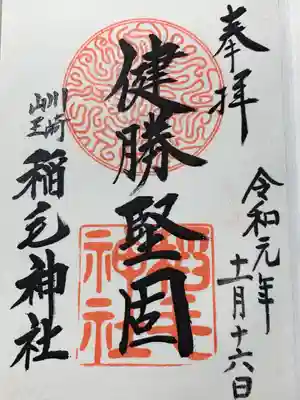 奉拝
健勝堅固
川崎
山王
稲毛神社
令和元年
十一月十六日